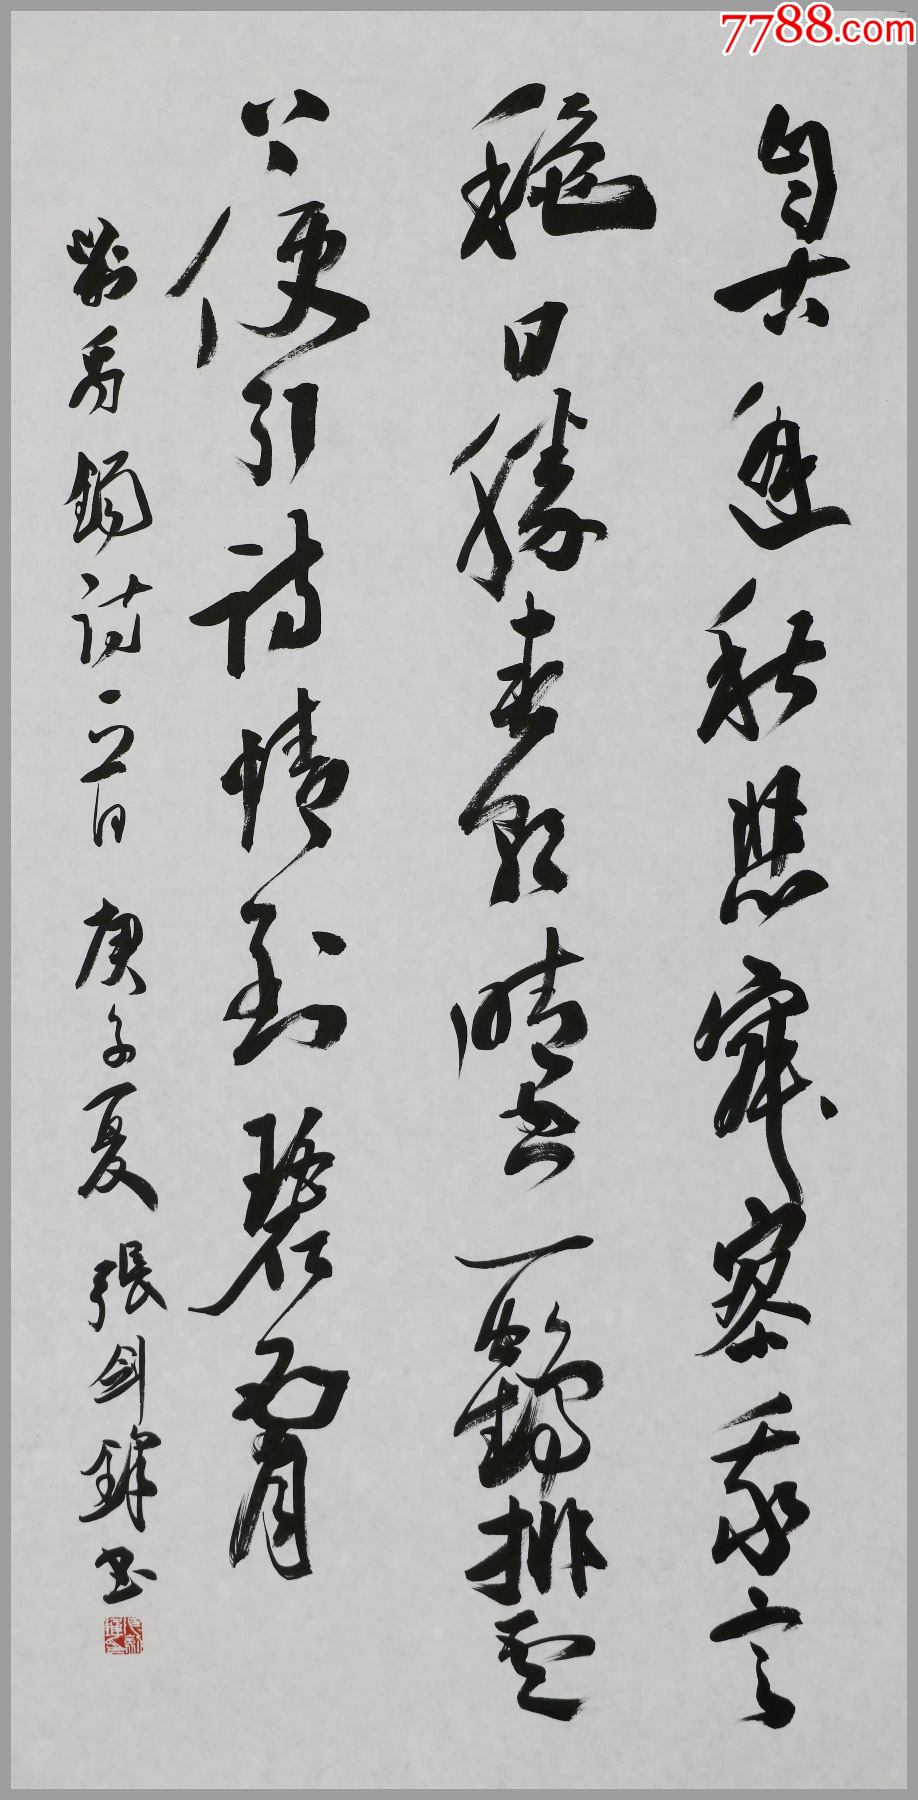 7788.com
自古逢秋悲寂寥我言
穐日勝春朝晴空一鶴排雲
上便引詩情到碧霄
劉禹錫詩一首 庚子夏 張剑鋒书